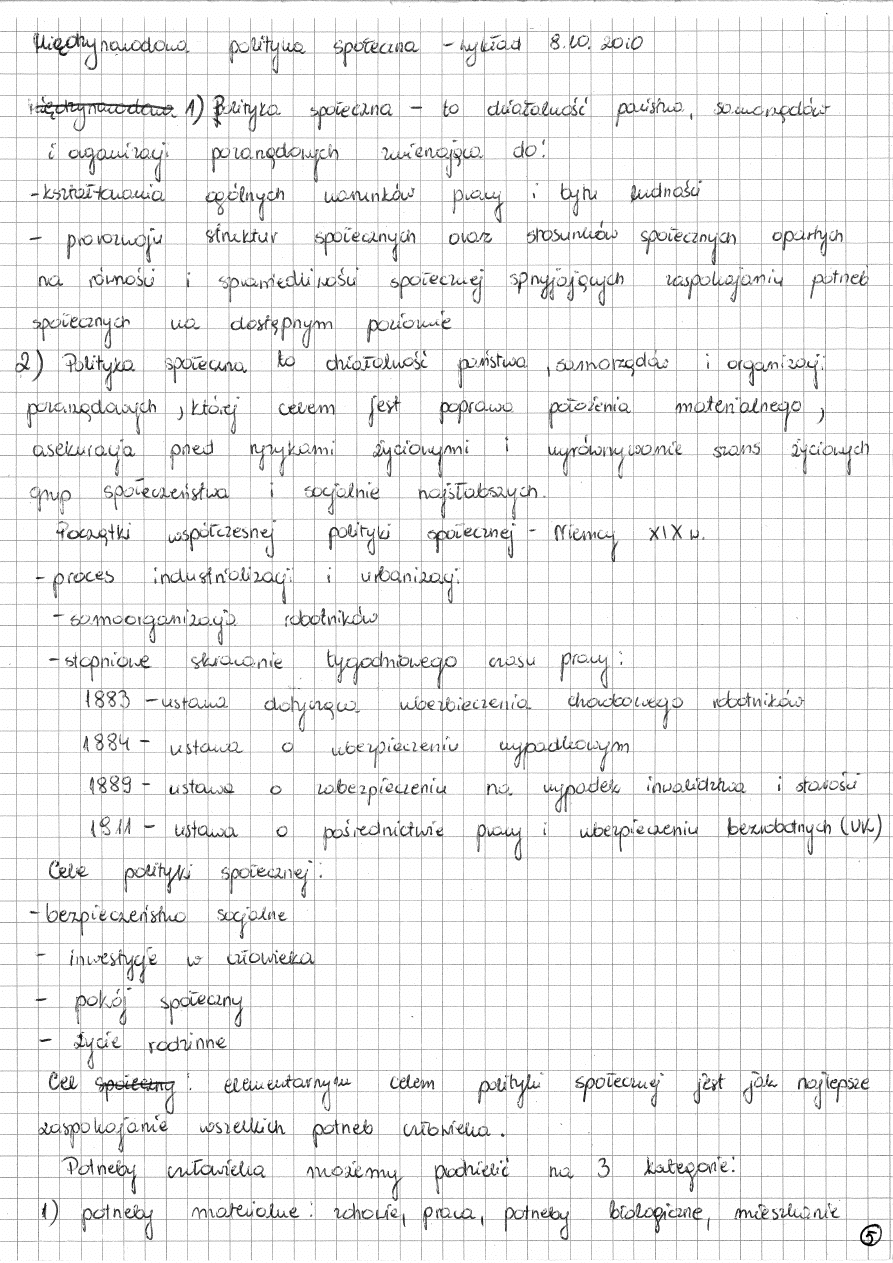 Międzynarodowa polityka społeczna - wykład 8.10.2010
Międzynarodowa 1) Polityka społeczna - to działalność państwa, samorządów
i organizacji pozarządowych zmierzająca do:
- kształtowania ogólnych warunków pracy i bytu ludności
- prorozwoju struktur społecznych oraz stosunków społecznych opartych
na równości i sprawiedliwości społecznej sprzyjających zaspokajaniu potrzeb
społecznych na dostępnym poziomie
2) Polityka społeczna to działalność państwa, samorządów i organizacji
pozarządowych, której celem jest poprawa położenia materialnego,
asekuracja przed ryzykami życiowymi i wyrównywanie szans życiowych
grup społeczeństwa i socjalnie najsłabszych.
Początki współczesnej polityki społecznej - Niemcy XIX w.
- proces industrializacji i urbanizacji
- samoorganizacja robotników
- stopniowe skracanie tygodniowego czasu pracy:
1883 - ustawa dotycząca ubezbieczenia chorobowego robotników
1884 - ustawa o ubezpieczeniu wypadkowym
1889 - ustawa o zabezpieczeniu na wypadek inwalidztwa i starości
1911 - ustawa o pośrednictwie pracy i ubezpieczeniu bezrobotnych (UK)
Cele polityki społecznej:
- bezpieczeństwo socjalne
- inwestycje w człowieka
- pokój społeczny
- życie rodzinne
Cel społeczny: elementarnym celem polityki społecznej jest jak najlepsze
zaspokojanie wszelkich potrzeb człowieka.
Potrzeby człowieka możemy podzielić na 3 kategorie:
1) potrzeby materialne: zdrowie, praca, potrzeby biologiczne, mieszkanie
5